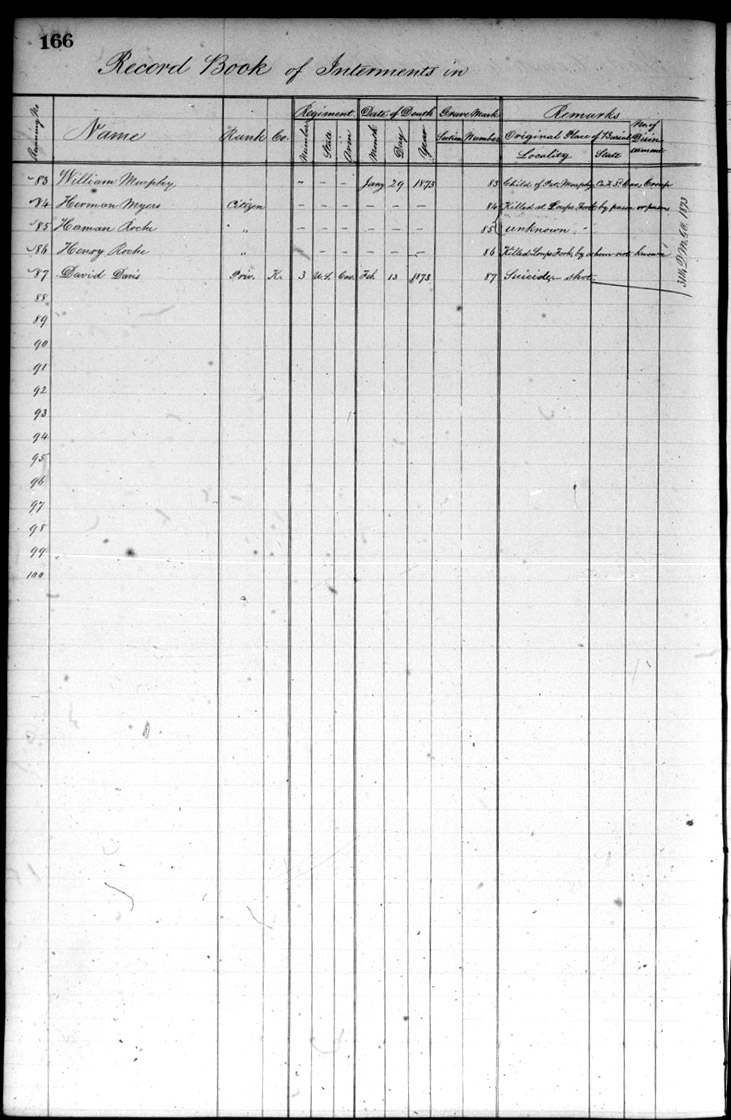 166
Record Book of Interments in
Running No Name Rank Co. Regiment Date of Death Grave Mark Remarks
Number State Arm Month Day Year Section Number Original Place of Burial No. of Disinterment
Locality State
83 William Murphy - - - Jany 29 1873 83 Child of Pat. Murphy Co. 3d Cav.
84 Herman Myers Citizen - - - - - - 84 Killed at Loups Fork by
85 Haman Roche " - - - - - - 85 unknown. -
86 Henry Roche " - - - - - - 86 Killed Loups Fork, by whom not known
87 David Davis Priv. K. 3 U.S. Cav. Feb. 13 1873 87 Suicide, shot.
88
89
90
91
92
93
94
95
96
97
98
99
100
1873